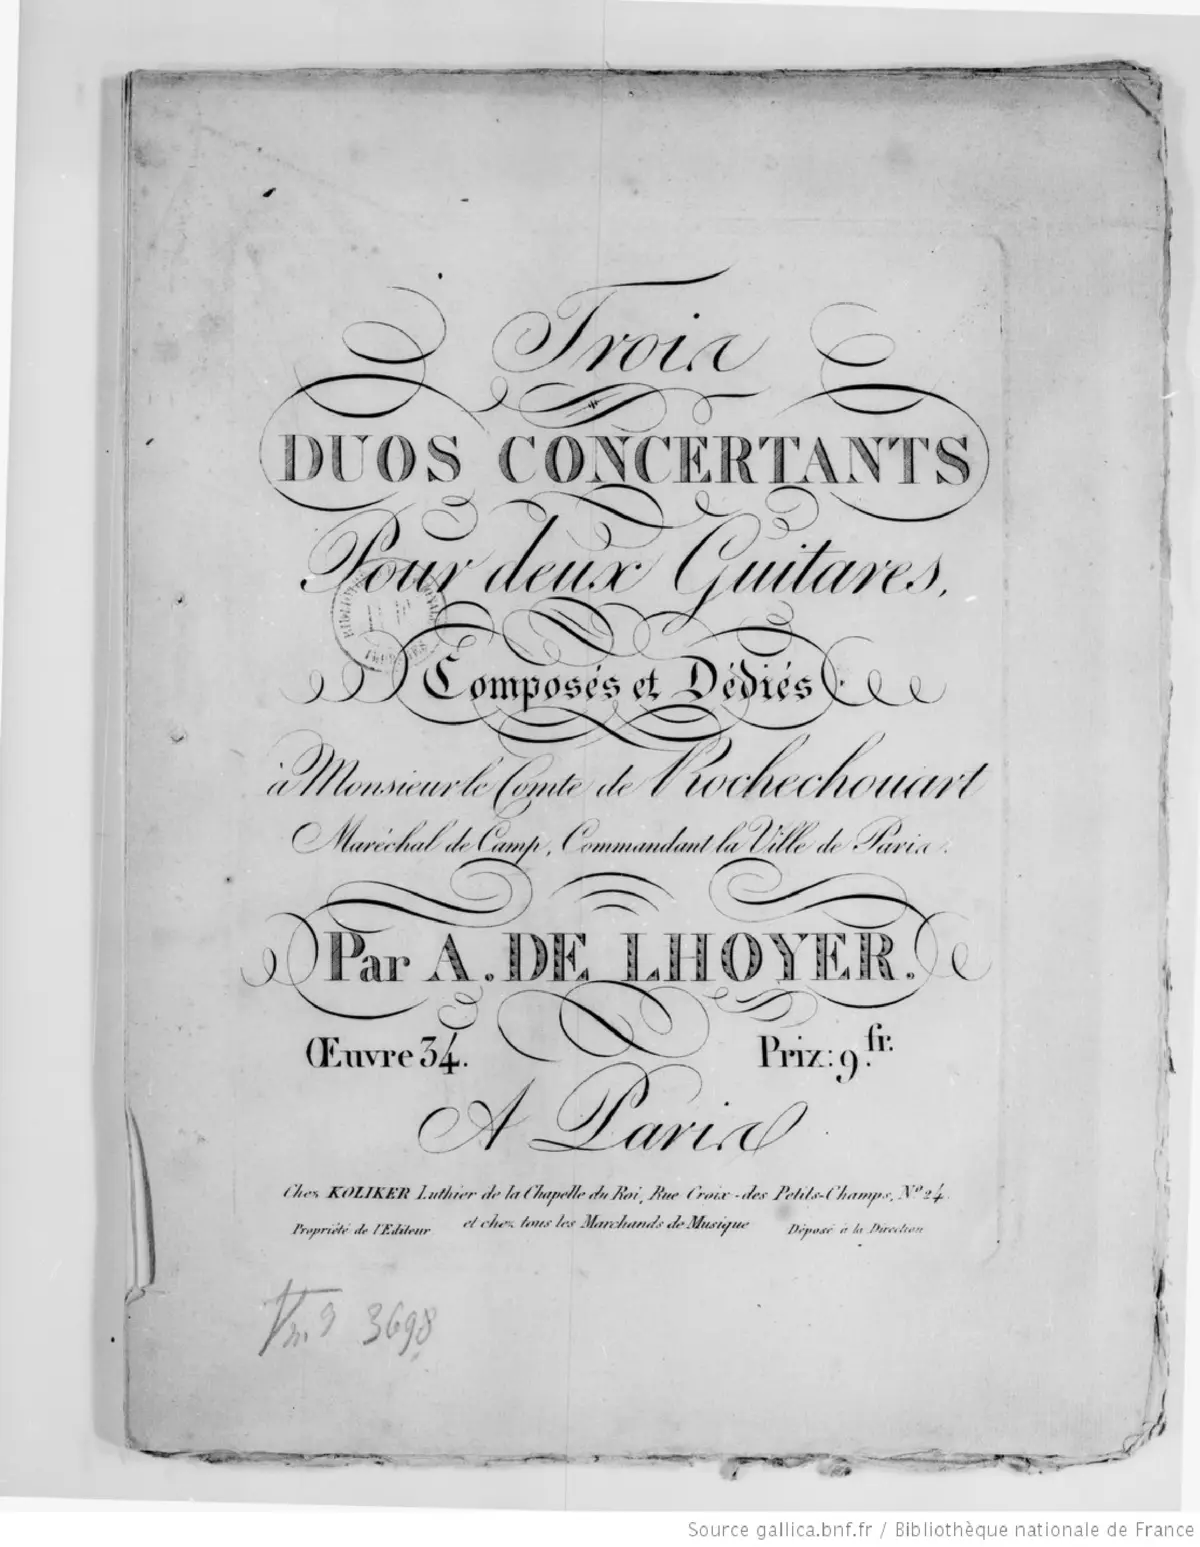 Trois
DUOS CONCERTANTS
Pour deux Guitares,
Composés et Dédiés
à Monsieur le Comte de Rochechouart
Maréchal de Camp, Commandant la Ville de Paris.
Par A. DE LHOYER.
Œuvre 34. Prix: 9 fr.
A Paris
Chez KOLIKER Luthier de la Chapelle du Roi, Rue Croix-des Petits-Champs, N.º 24.
Propriété de l'Editeur et chez tous les Marchands de Musique Déposé à la Direction
3698
Source gallica.bnf.fr / Bibliothèque nationale de France